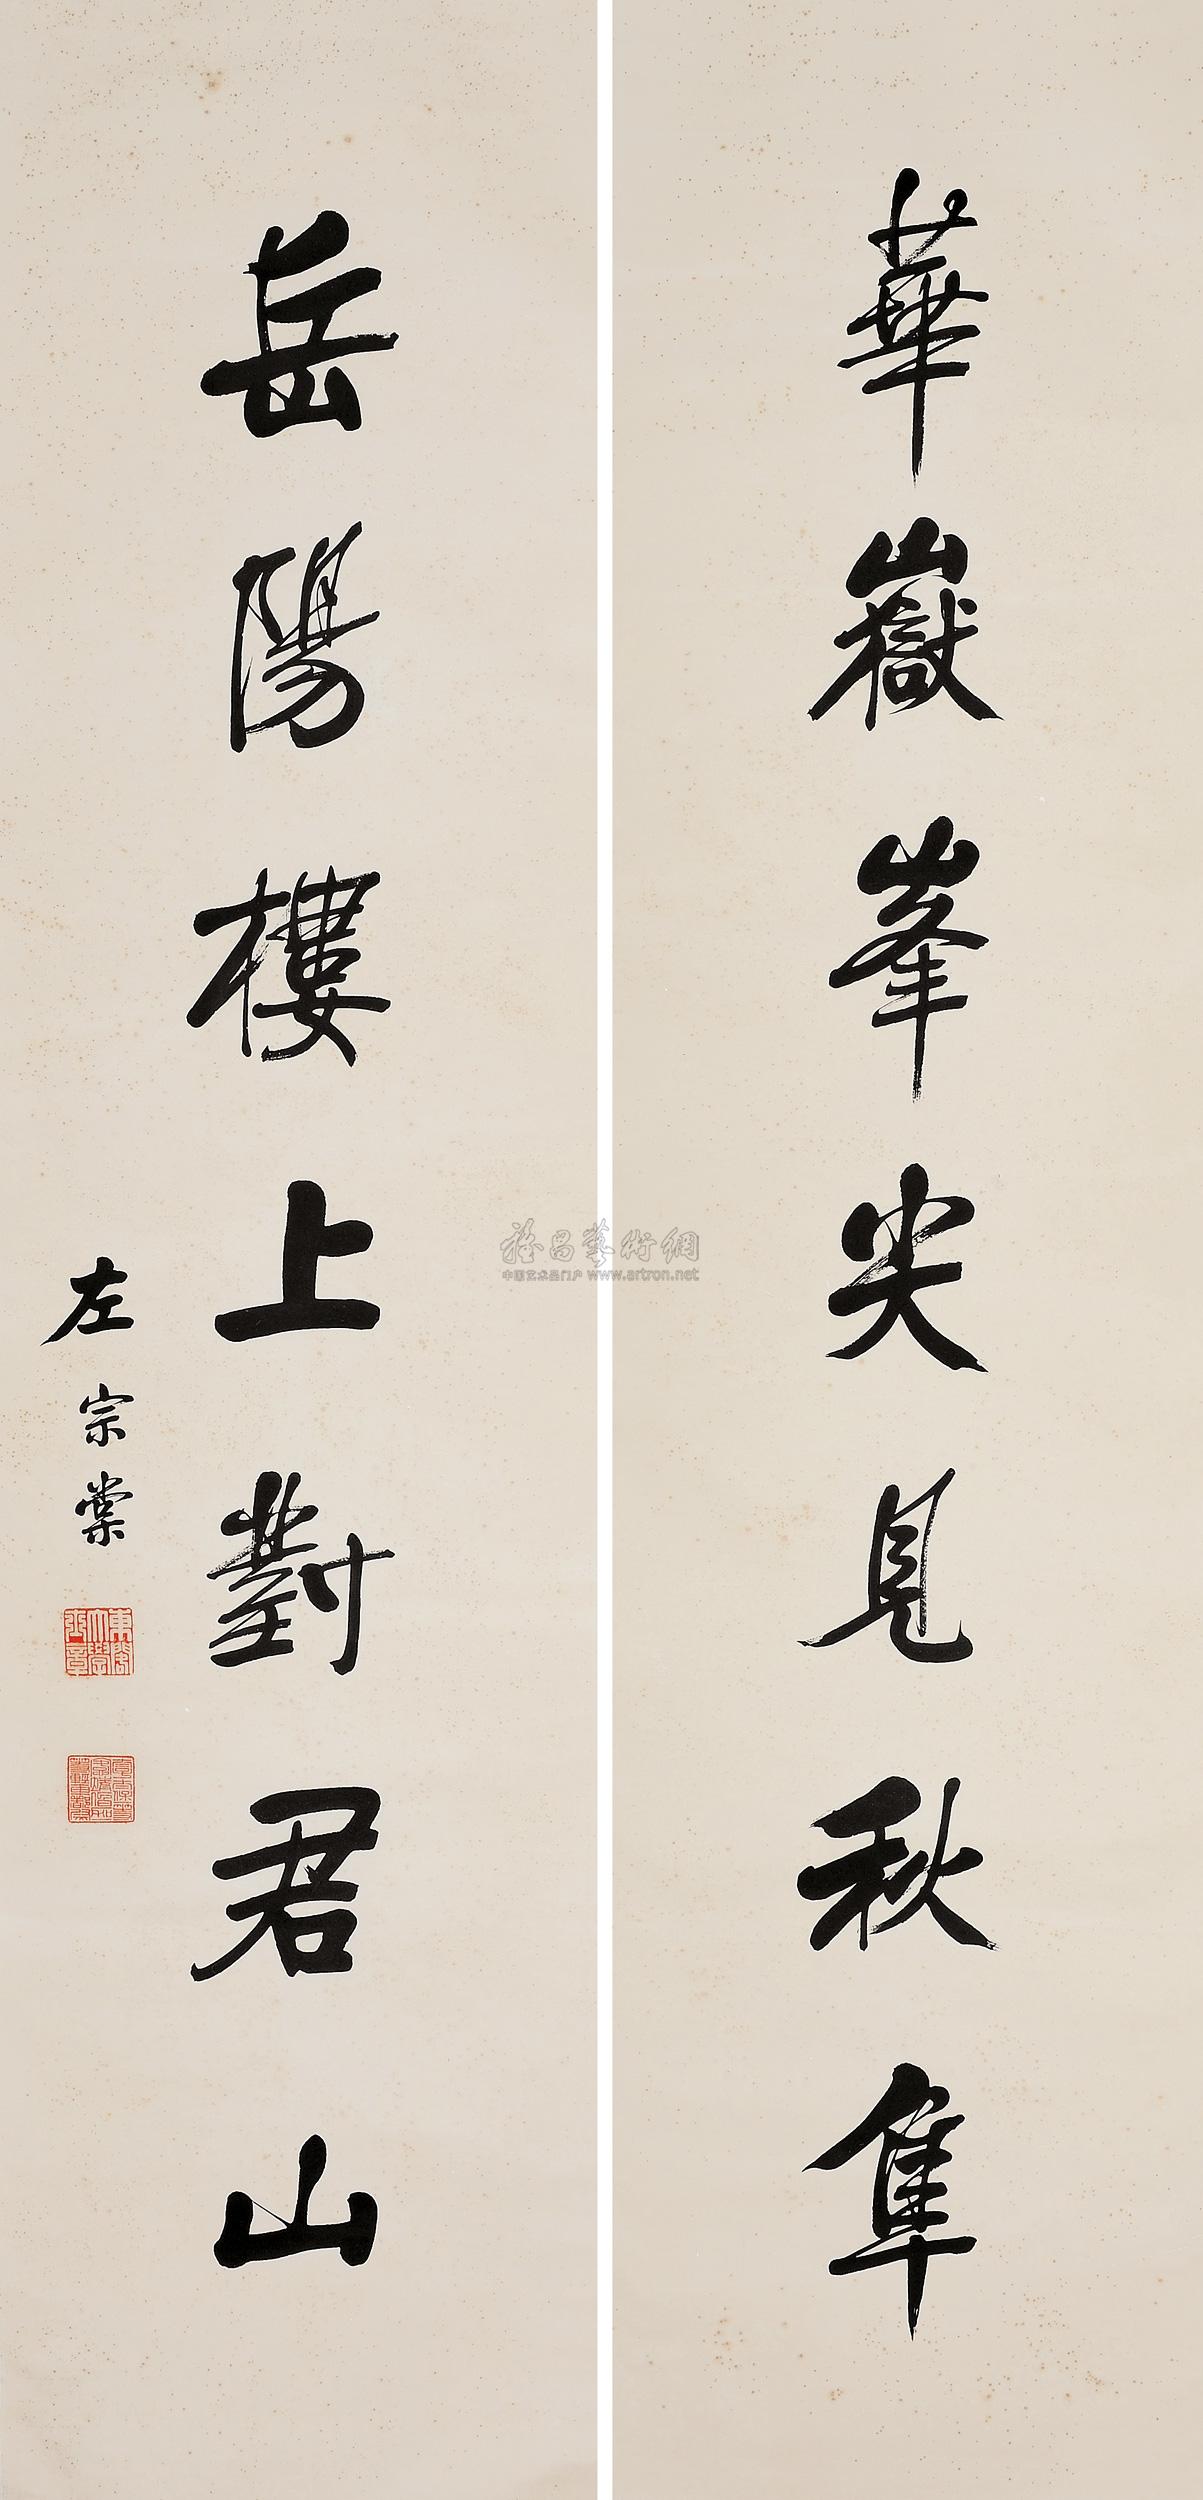 華嶽峯尖見秋隼
岳陽樓上對君山
左宗棠
東閣大學士章
雅昌藝術網
中国艺术品门户 www.artron.net